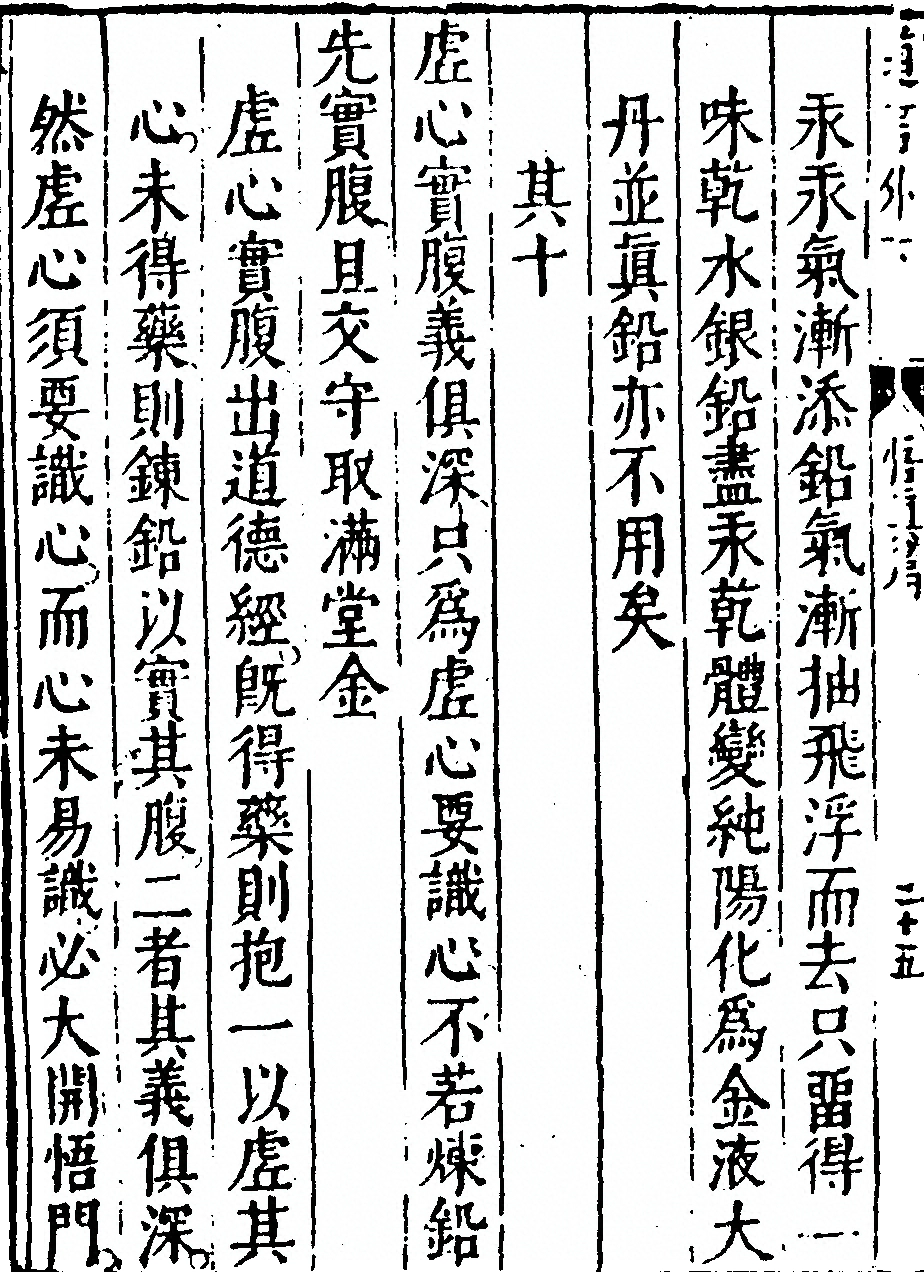 汞汞氣漸添鉛氣漸抽飛浮而去只畱得一
味乾水銀鉛盡汞乾體變純陽化爲金液大
丹並眞鉛亦不用矣
其十
虛心實腹義俱深只爲虛心要識心不若煉鉛
先實腹且交守取滿堂金
虛心實腹出道德經旣得藥則抱一以虛其
心未得藥則鍊鉛以實其腹二者其義俱深
然虛心須要識心而心未易識必大開悟門
二十五